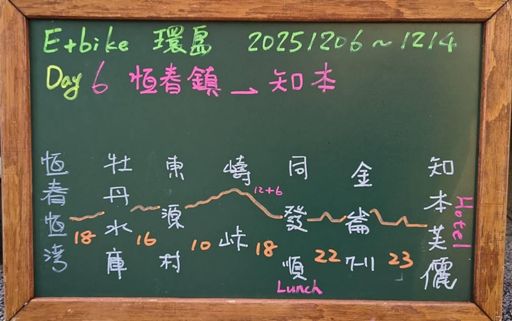 E+bike 環島 20251206~1214
Day 6 恆春鎮 → 知本
恆春恆灣
18
牡丹水庫
16
東源村
10
崎峠
12+6
18
同發順
Lunch
22
金崙
7-11
23
知本芙儷
Hotel